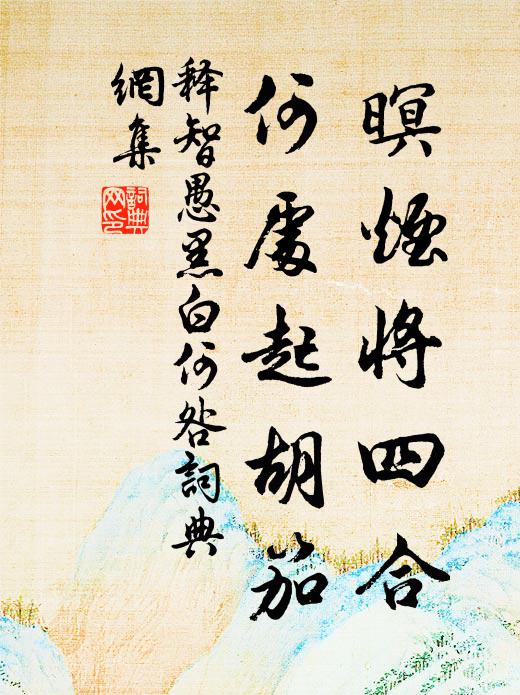 暝煙将四合
何處起胡笳
释智愚黑白何咎詞典
網集
詞典
网印